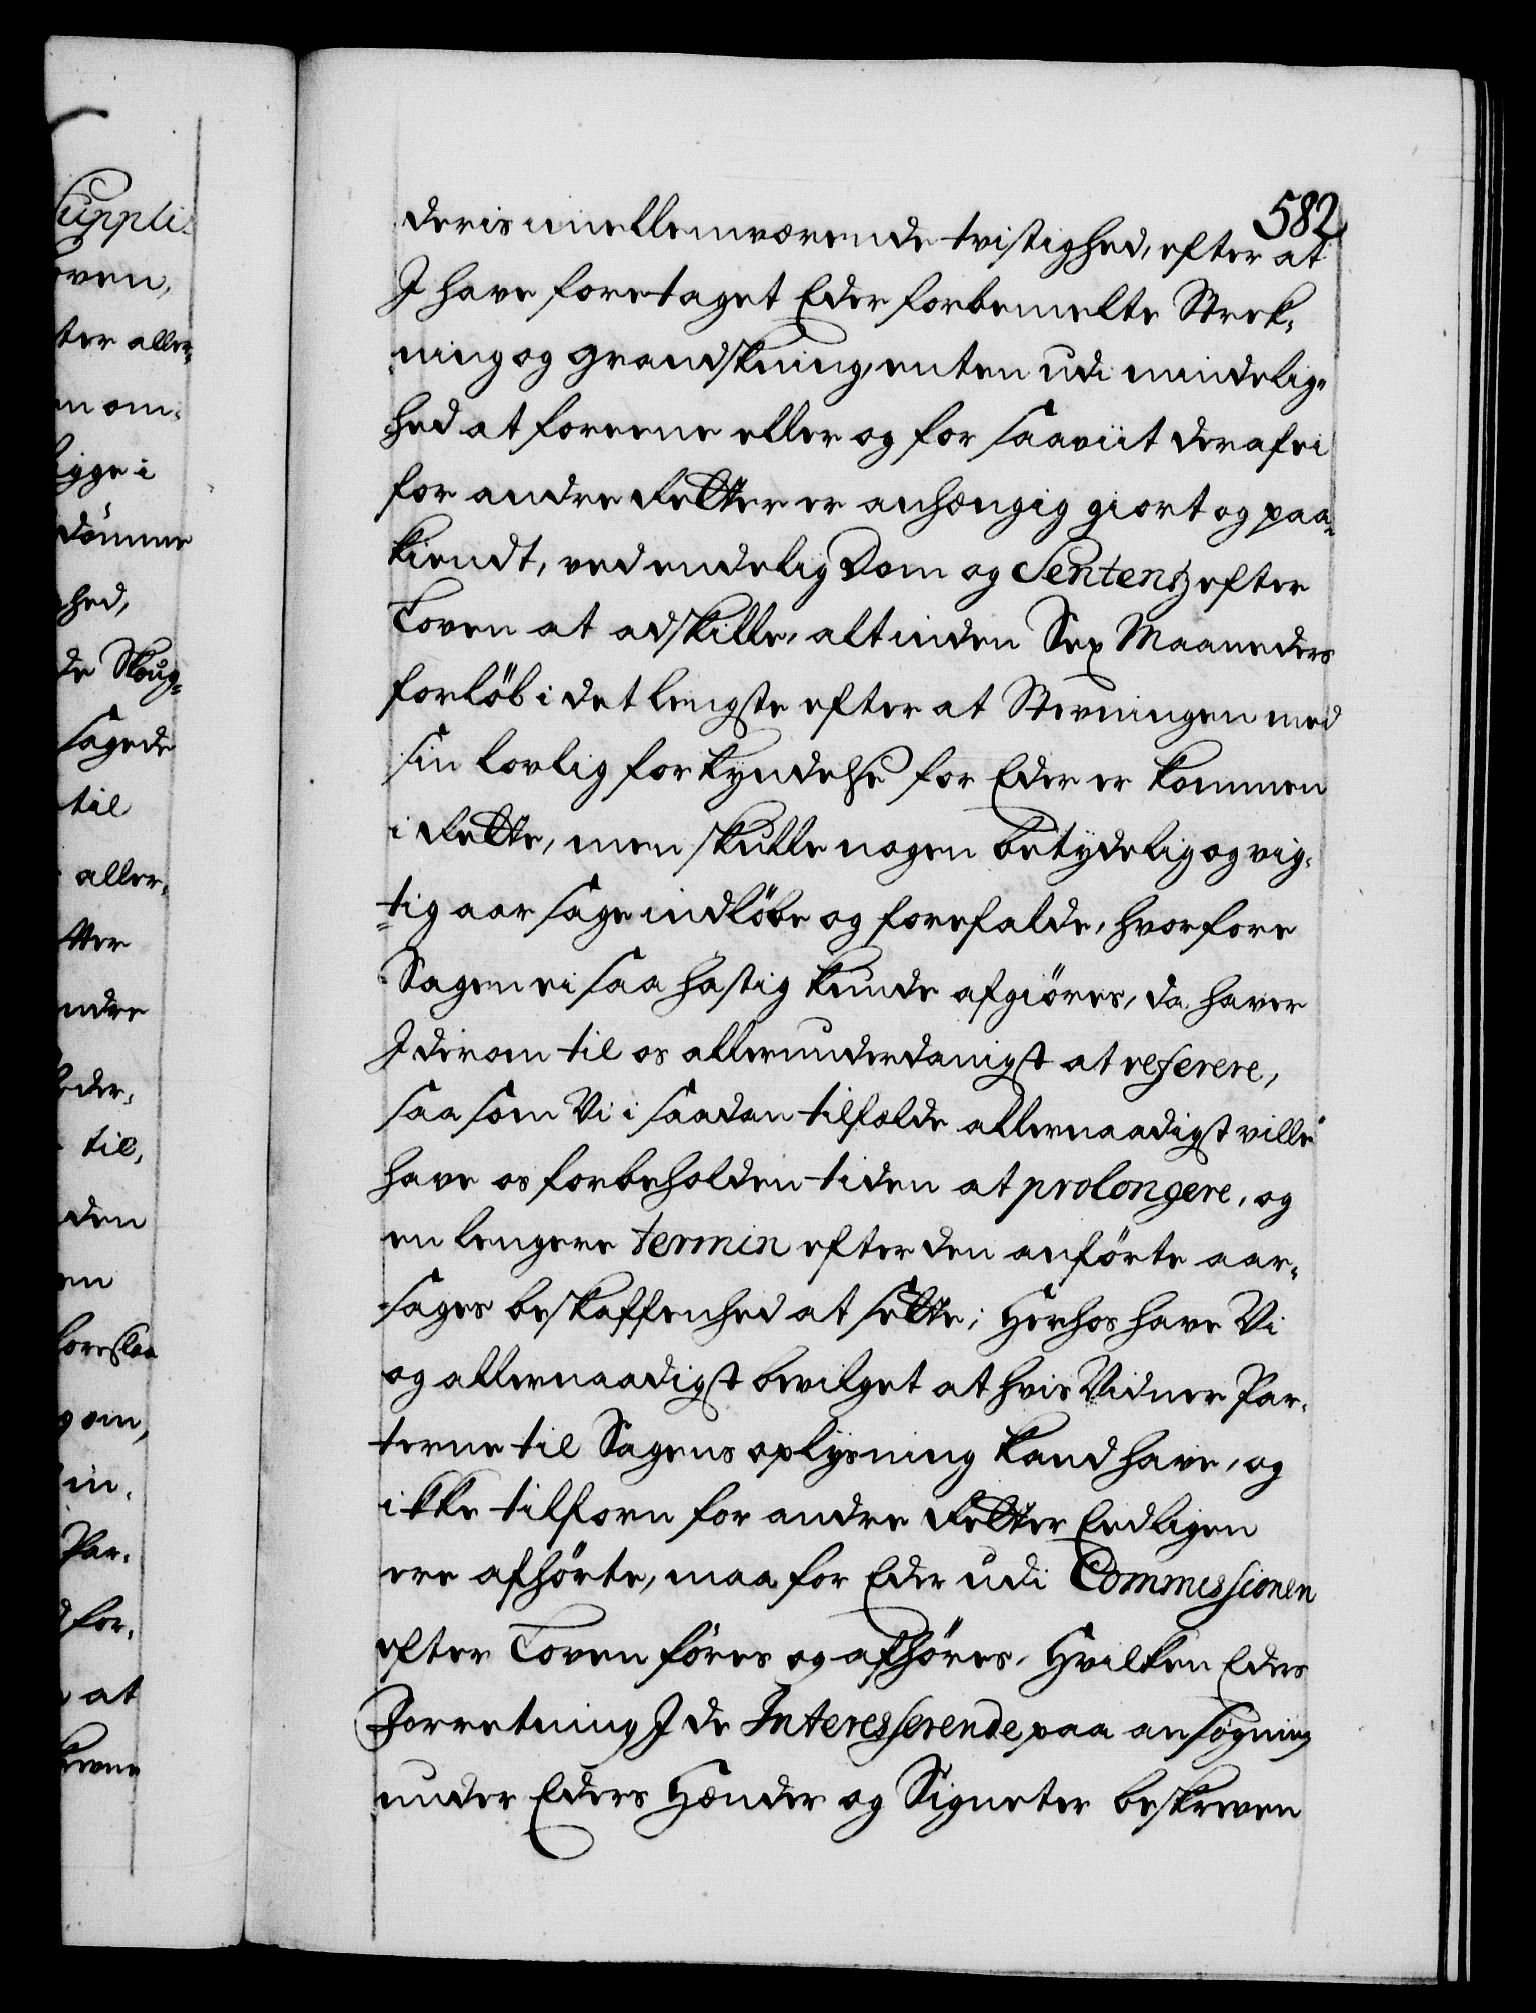 582
deris imellem værende tvistighed, efter at
J have foretaget Eder forbemelte Strek-
ning og grandskning, enten udi mindelig-
hed at foreene eller og for saaviit deraf ei
for andre Retter er anhængig giort og paa-
kiendt, ved endelig Dom og Sententz efter
Loven at adskille, alt inden Sex Maaneders
forløb i det lengste efter at Stevningen med
sin lovlig forkyndelse for Eder er kommen
i Rette, men skulle nogen betydelig og vig-
tig aarsage indløbe og forefalde, hvorfore
Sagen ei saa hastig kunde afgiøres, da haver
J derom til os allerunderdanigst at referere,
saa som Vi i saadan tilfælde allernaadigst ville
have os forbeholden tiden at prolongere, og
en lengere termin efter den anførte aar-
sages beskaffenhed at sette; Herhos have Vi
og allernaadigst bevilget at hvis Vidner Par-
terne til Sagens oplysning kand have, og
ikke tilforn for andre Retter Eedligen
ere afhørte, maa for Eder udi Commissionen
efter Loven føres og afhøres, Hvilken Eders
Forretning J de Interesserende paa ansøgning
under Eders Hænder og Signeter beskreven
Suppli-
oven,
ter aller-
en om-
ligge i
dømme
hed,
de Skoug-
sagede
til
aller-
tter
ndre
eder-
til,
den
en
foreslaa
g om,
in-
Par-
d for-
at